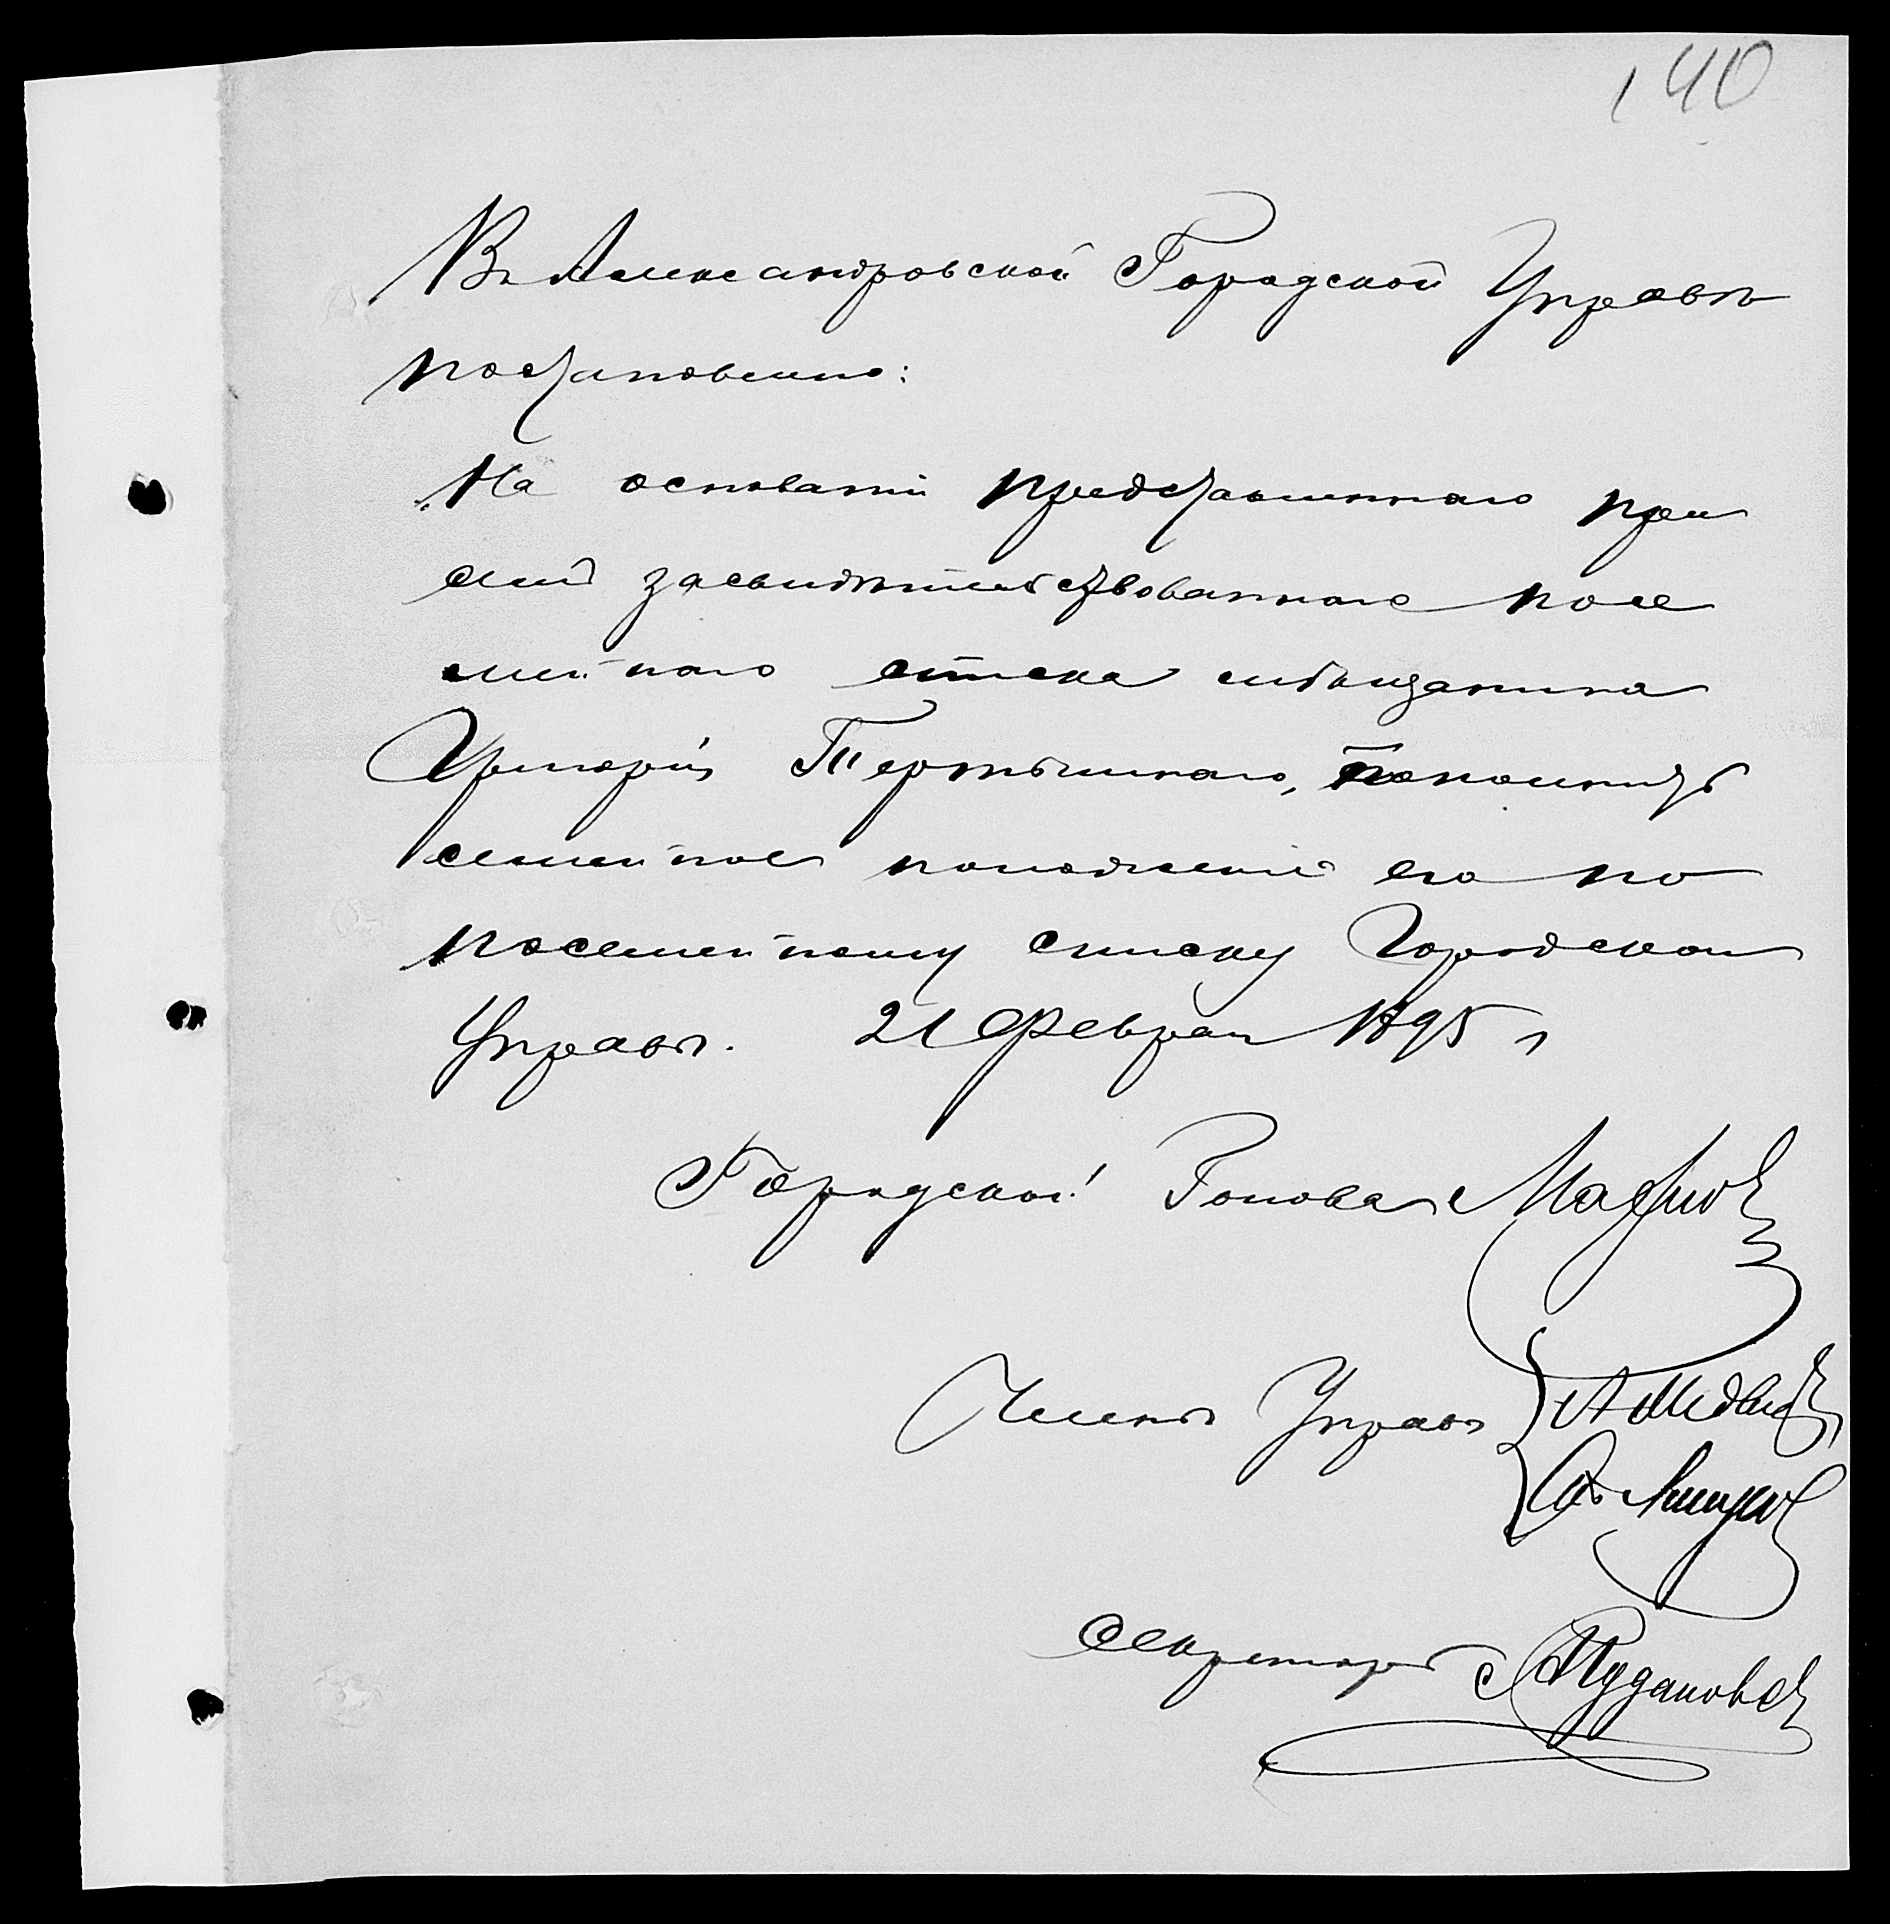 140
Въ Александровской Городской Управѣ
постановлено:
На основаніи представленнаго при
семъ засвидѣтельствованнаго посе
мейнаго списка мѣщанина
Григорія Тертышнаго, пополнить
семейное положеніе его по
посемейному списку Городской
Управы. 21 Февраля 1895 г
Городской Голова
Члены Управы { А Медвед
Секретарь